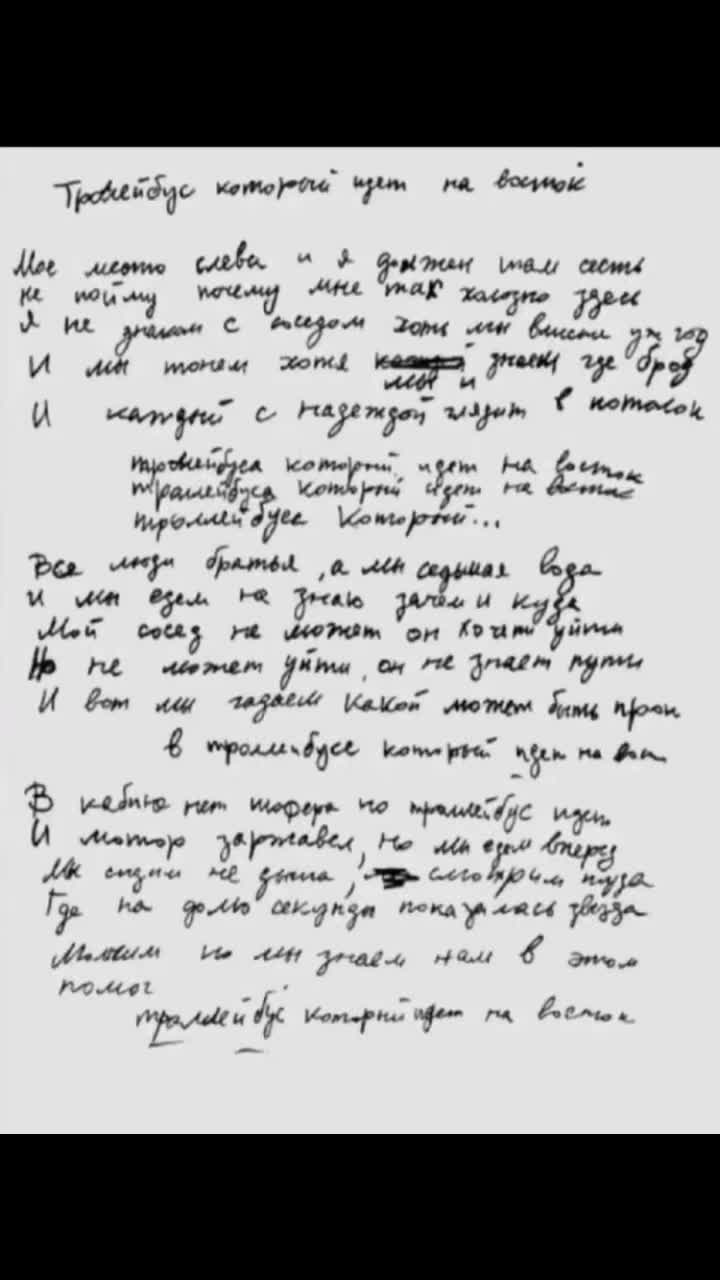 Троллейбус который идет на восток
Мое место слева и я должен там сесть
не пойму почему мне так холодно здесь
Я не знаком с соседом хоть мы вместе уж год
И мы тонем хотя знаем где брод
мы и
И каждый с надеждой глядит в потолок
троллейбуса который идет на восток
троллейбуса который идет на восток
троллейбуса который...
Все люди братья, а мы седьмая вода
и мы едем не знаю зачем и куда
Мой сосед не может он хочет уйти
Но не может уйти, он не знает пути
И вот мы гадаем какой может быть прок
в троллейбусе который идет на вост
В кабине нет шофера но троллейбус идет
И мотор заржавел, но мы едем вперед
Мы сидим не дыша, смотрим туда
Где на долю секунды показалась звезда
Молчим но мы знаем нам в этом
помог
троллейбус который идет на восток